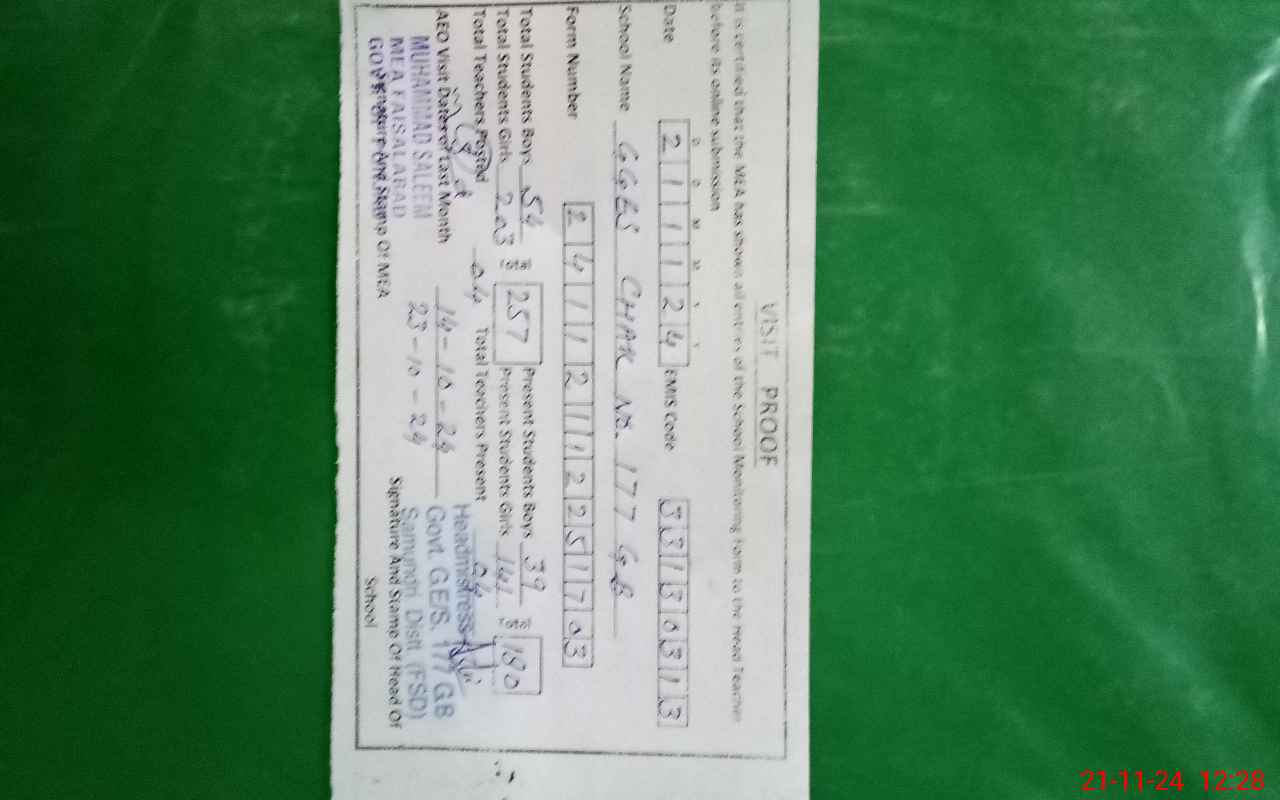 VISIT PROOF
It is certified that the MEA has shown all entries of the School Monitoring Form to the Head Teacher
before its online submission
D D M M Y Y
Date 2 1 1 1 2 4 EMIS Code 3 3 1 3 0 3 1 3
School Name GGES CHAK NO. 177 GB
Form Number 2 4 1 1 2 1 1 2 2 5 1 7 0 3
Total Students Boys 54 257 Present Students Boys 39 180
Total Students Girls 203 Present Students Girls 141
Total Teachers Posted 04 Total Teachers Present 04
AEO Visit Dates of Last Month 14-10-24
23-10-24
MUHAMMAD SALEEM
MEA FAISALABAD
Signature And Stamp Of MEA
Headmistress
Govt. GE/S. 177 GB
Samundri Distt (FSD)
Signature And Stamp Of Head Of
School
21-11-24 12:28